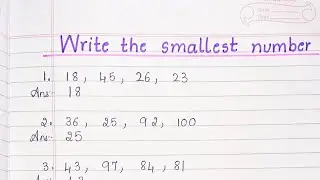 Write the smallest number
1. 18, 45, 26, 23
Ans: 18
2. 36, 25, 92, 100
Ans: 25
3. 43, 97, 84, 81